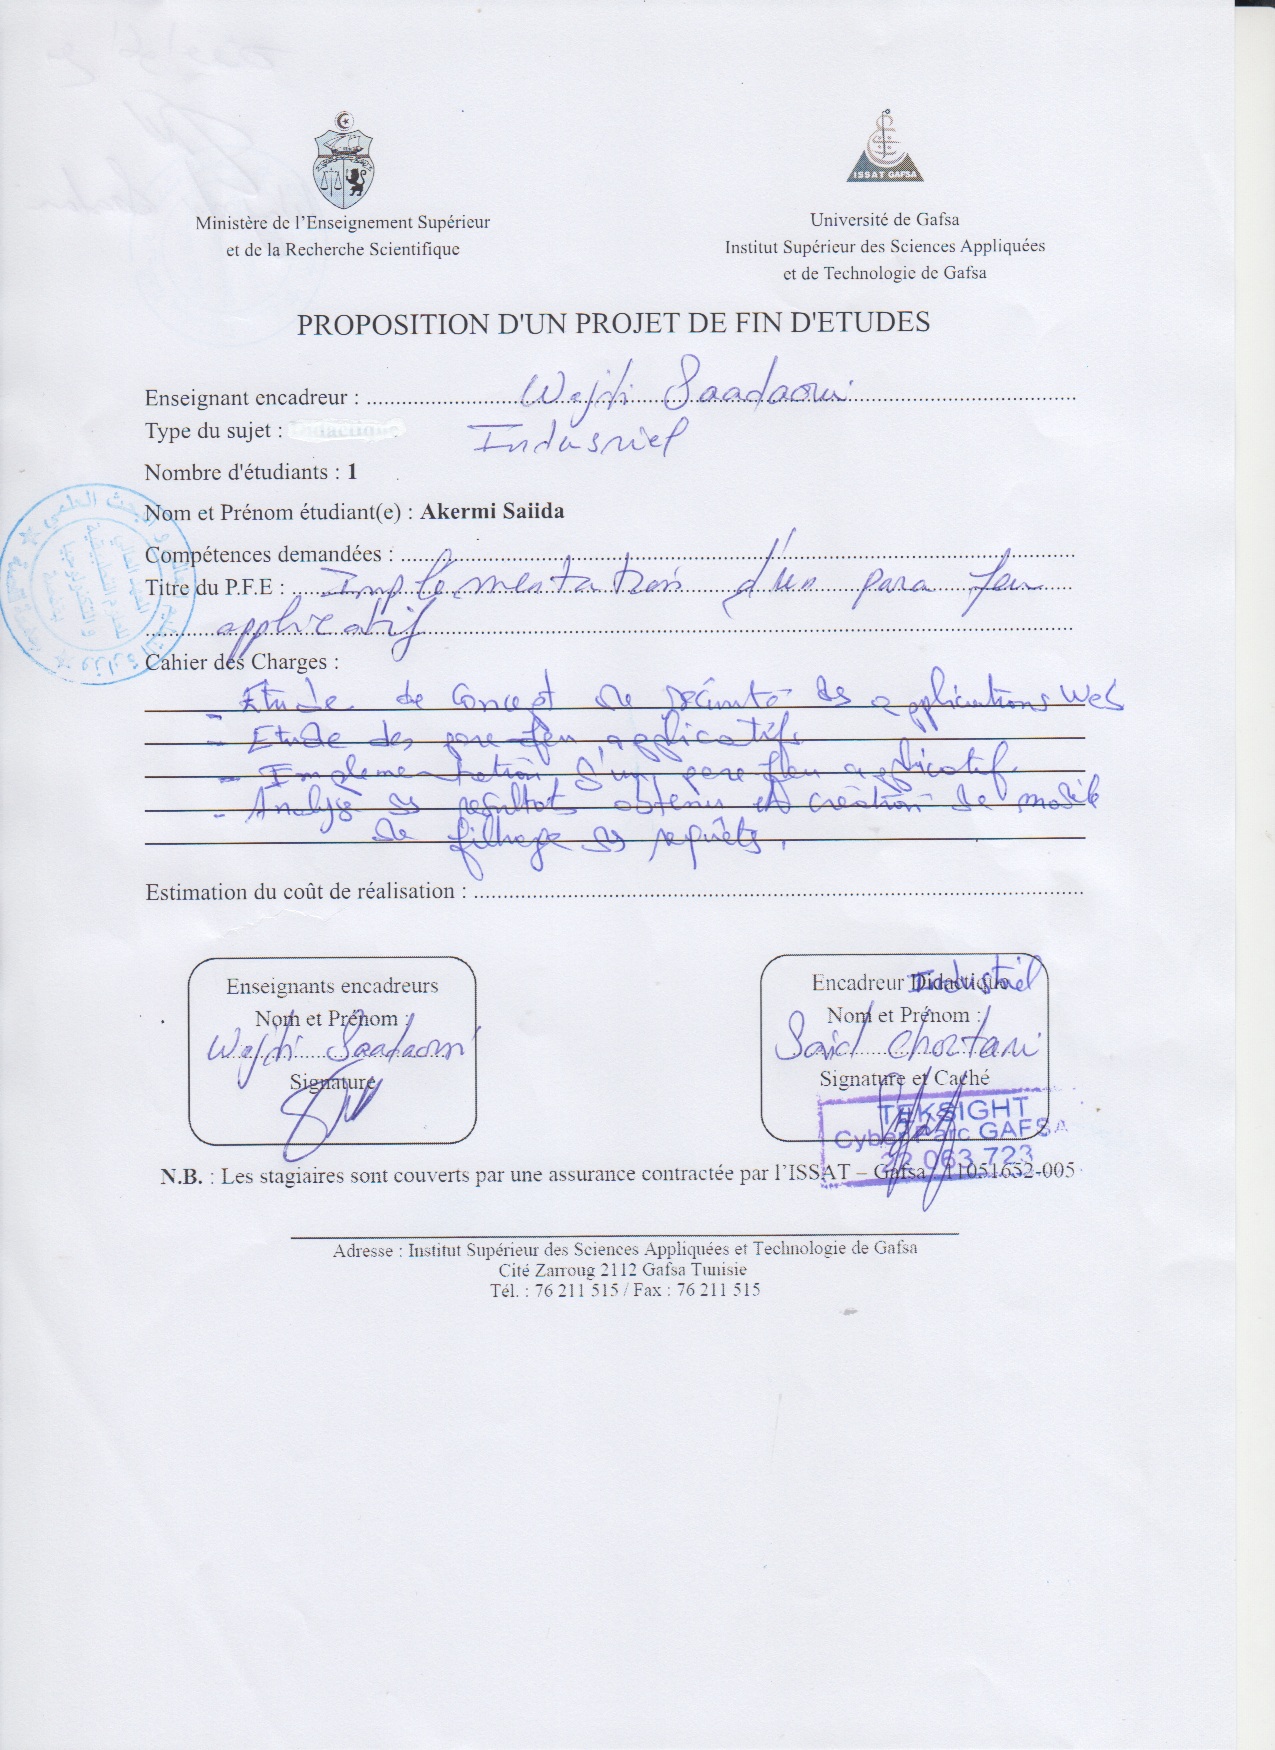 ISSAT GAFSA
Ministère de l'Enseignement Supérieur
et de la Recherche Scientifique
Université de Gafsa
Institut Supérieur des Sciences Appliquées
et de Technologie de Gafsa
PROPOSITION D'UN PROJET DE FIN D'ETUDES
Enseignant encadreur : Wajdi Saadaoui
Type du sujet : Indusriel
Nombre d'étudiants : 1
Nom et Prénom étudiant(e) : Akermi Saiida
Compétences demandées :
Titre du P.F.E : Implémentation d'un para feu
applicatif
Cahier des Charges :
- Etude de Concept de sécurité des applications Web
- Etude des pare-feu applicatifs
- Implementation d'un pare feu applicatif.
- Analyse des resultats obtenu et création de modèle
de filtrage des requêts.
Estimation du coût de réalisation :
Enseignants encadreurs
Nom et Prénom :
Wajdi Saadaoui
Signature
Encadreur Industriel
Nom et Prénom :
Said Chortani
Signature et Caché
TEKSIGHT
Cyber Parc GAFSA
22 063 723
N.B. : Les stagiaires sont couverts par une assurance contractée par l'ISSAT – Gafsa / 11051652-005
Adresse : Institut Supérieur des Sciences Appliquées et Technologie de Gafsa
Cité Zarroug 2112 Gafsa Tunisie
Tél. : 76 211 515 / Fax : 76 211 515